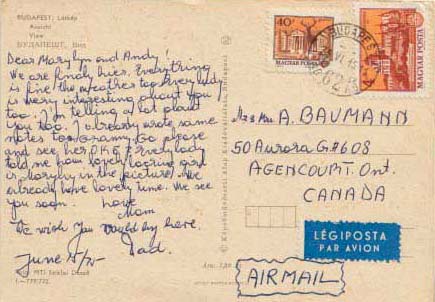 BUDAPEST: Látkép
Ansicht
View
БУДАПЕШТ: Вид
Dear Marylyn and Andy!
We are finaly hier. Everything
is fine the weather too. Everybody
is wery interesting about you
too. I'm telling a lot about
you too. I already wrote same
notes to Granny. Go please
and see her O.K.? Everybody
told me how lovely looring girl
is Marylyn in the picture. We
already have lovely time. We see
you soon. Love
Mom
We wish You would by here.
Dad.
June
MTI
Képzőművészeti Alap Kiadóvállalata, Budapest
40f
MAGYAR POSTA
BUDAPEST
MAGYAR POSTA
A. BAUMANN
50 Aurora G#608
AGENCOURT. Ont.
CANADA
LÉGIPOSTA
PAR AVION
AIRMAIL